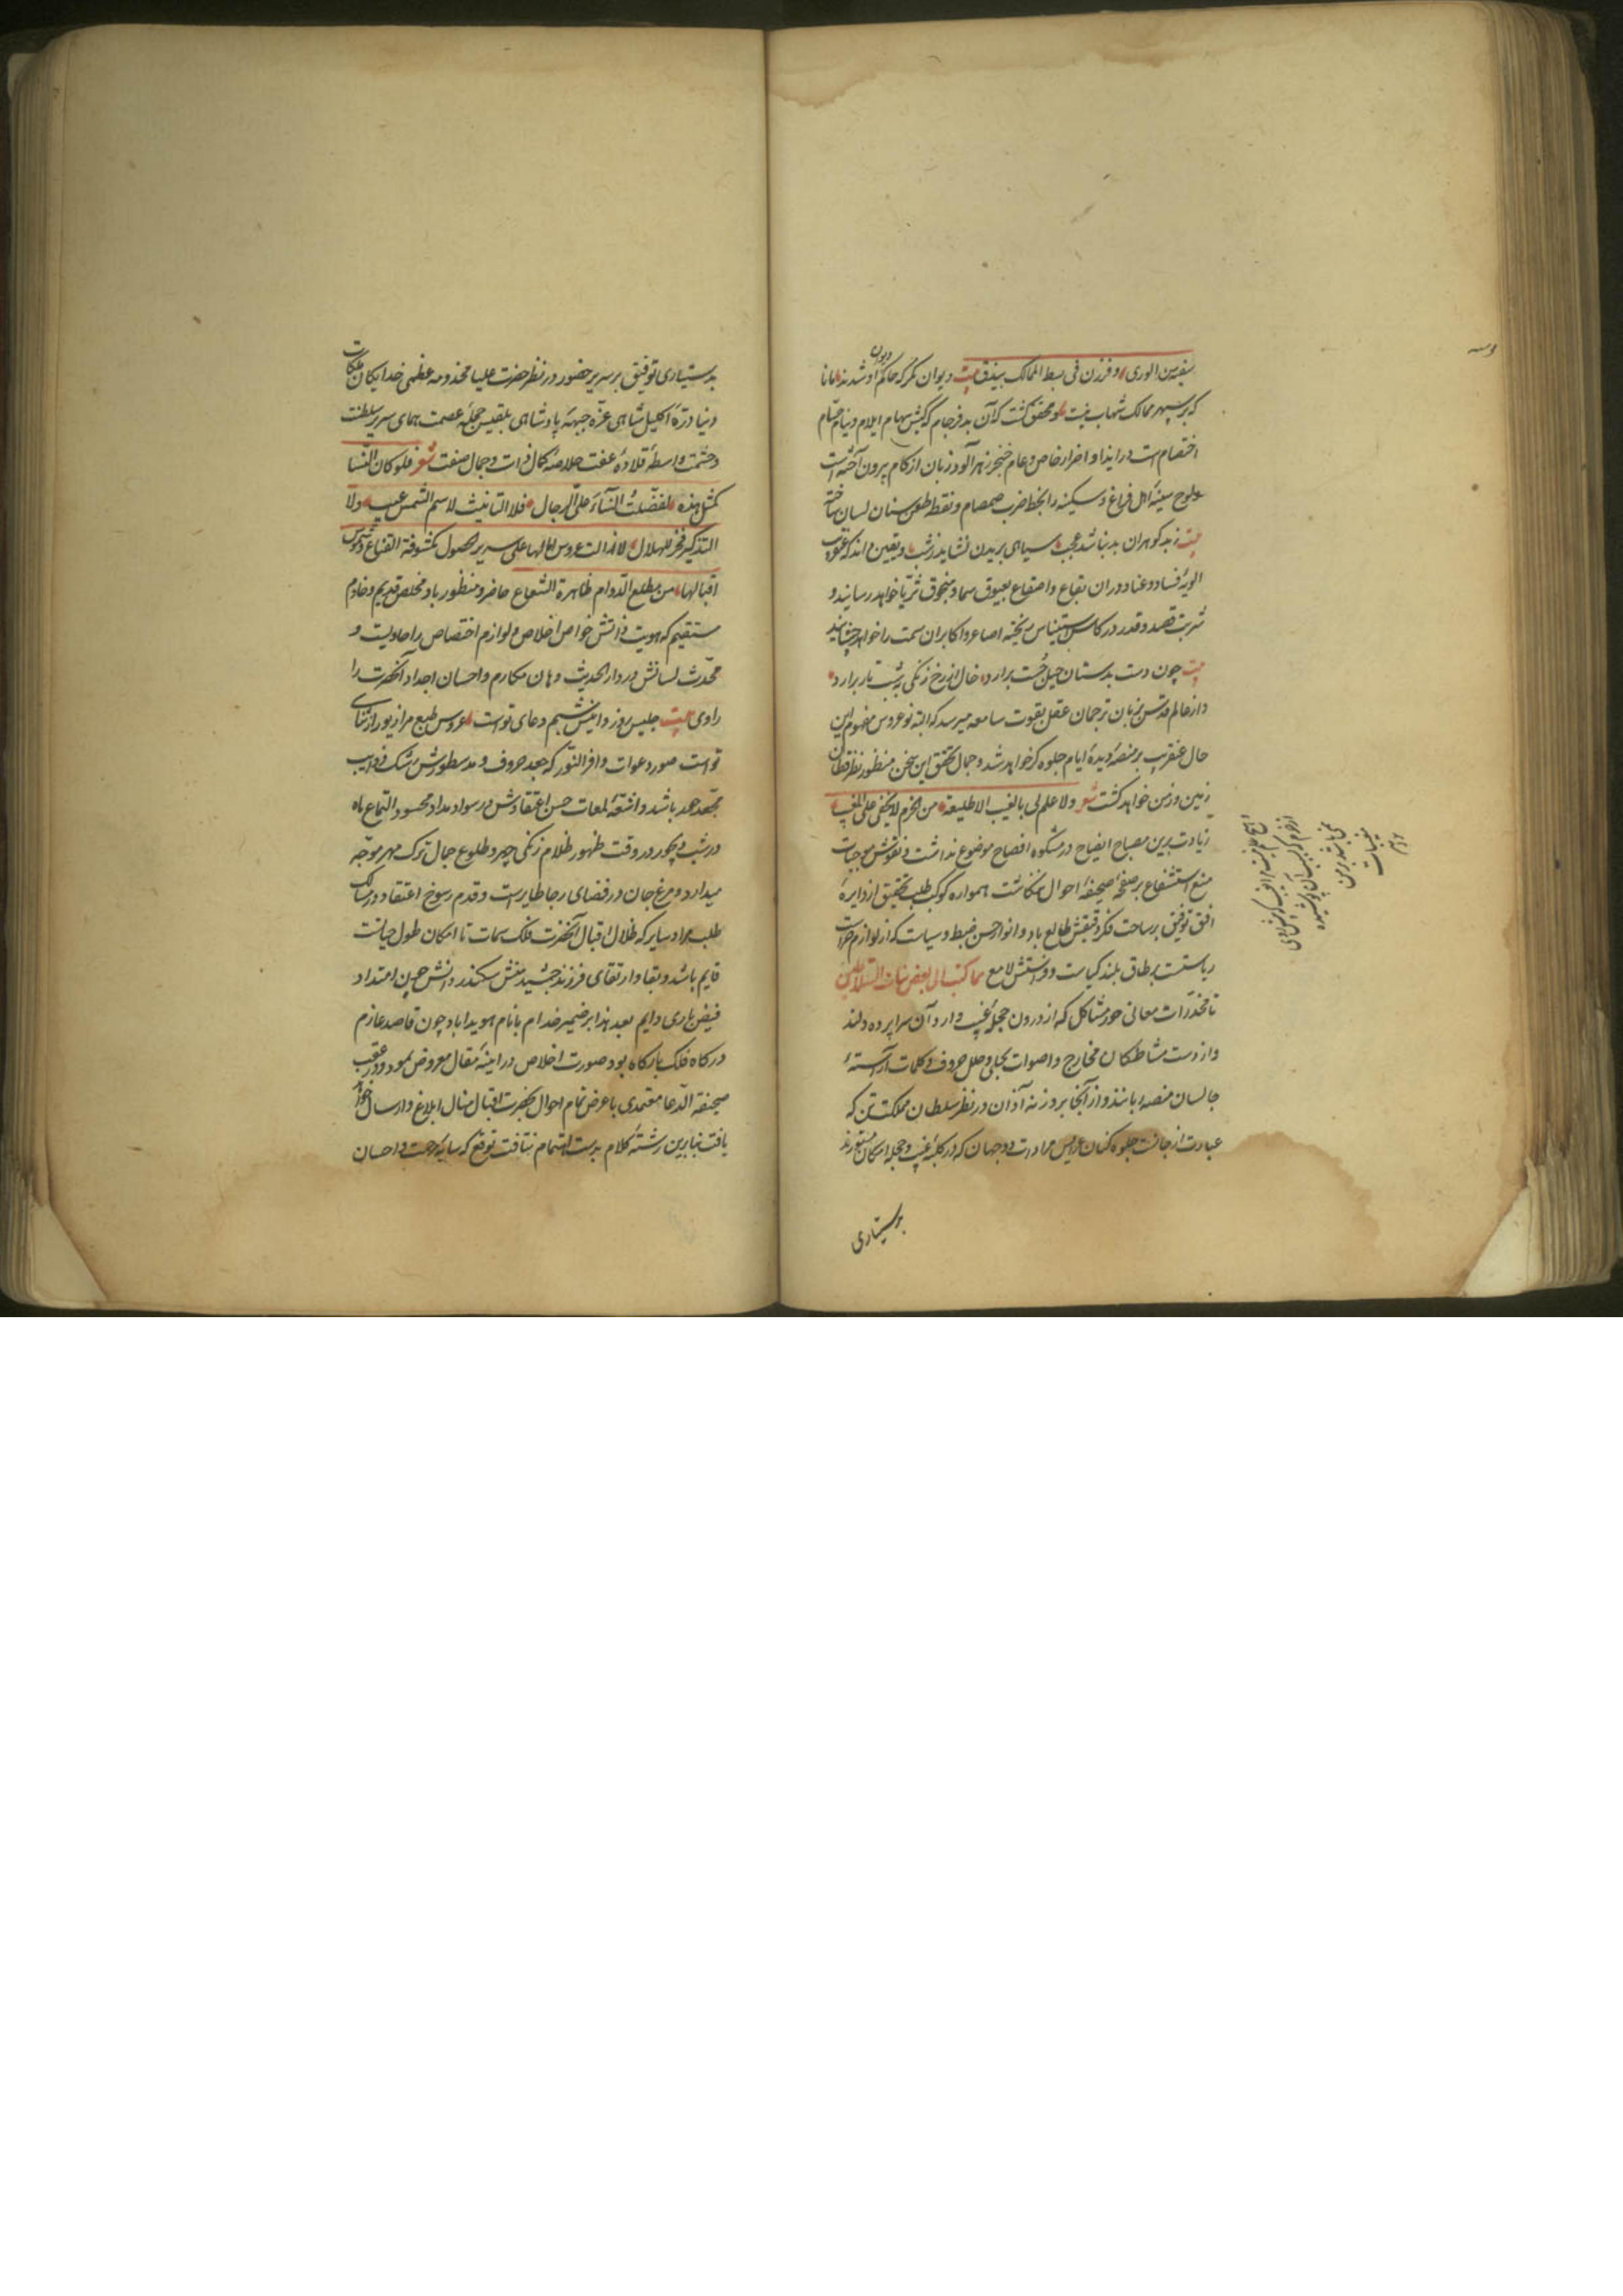 سفیه من الوری و فرزن فی بسط الممالک بیذق بیت دیوان نگر که حاکم دیوان او شدند مانا
که بر سپهر ممالک شهاب نیست و محقق گشت که آن بدفرجام که کیش سهام ایلام و نیام حسام
اختصام است در ایذا و اضرار خاص و عام خنجر زهرآلود زبان از کام بیرون آخته است
و لوح سینهٔ اهل فراغ و سکینه را بخط ضرب صمصام و نقط طعن سنان لسان ساخته
بیت ز بدگوهران بد نباشد عجب سیاهی بریدن نشاید ز شب و یقین داند که عنقریب
الویهٔ فساد و عناد در آن بقاع و اصقاع بعیوق سما و منجوق ثریا خواهد رسانید و
شربت قصد و قدر در کاس استیناس ریخته اصاغر و اکابر آن سمت را خواهد چشانید
بیت چون دست بدستان حیل چست برارد خال از رخ زنگی به شب تار برارد
و از عالم قدس بزبان ترجمان عقل بقوت سامعه میرسد که البته نوعروس مفهوم این
حال عنقریب بر منصهٔ دیدهٔ ایام جلوه گر خواهد شد و جمال تحقق این سخن منظور نظر قطان
زمین و زمن خواهد گشت شعر ولا علم لی بالغیب الا طلیعة من الحزم لا یخفی علی المغیب
زیادت برین مصباح ایضاح در مشکوه افصاح موضوع نداشت و نقوش موجبات
منع استشفاع بر صفحهٔ صحیفهٔ احوال ننگاشت همواره کوکب طلب تحقیق از دایرهٔ
افق توفیق بر ساحت فکر دقیقش طالع باد و انوار حسن ضبط و سیاست که از لوازم حراست
ریاستست بر طاق بلند کیاست و فراستش لامع مما کتب الی بعض بنات السلاطین
تا مخدرات معانی حور مشاکل که از درون حجلهٔ غیب وارد آن سراپرده دلند
و از دست مشاطگان مخارج و اصوات بحلی و حلل حروف و کلمات آراستهٔ
جالسان منصه لبانند و از آنجا بروزنه آذان در نظر سلطان مملکت تن که
عبارت از جانست جلوه کنان عرایس مرادات دو جهان که در کلبهٔ غیب و حجلهٔ امکان مستورند
بدستیاری
بدستیاری توفیق بر سریر حضور در نظر حضرت علیا مخدومه عظمی خدایگان ملکات
دنیا درهٔ اکلیل شاهی غرّه جبههٔ پادشاهی بلقیس حجلهٔ عصمت همای سریر سلطنت
و حشمت واسطهٔ قلادهٔ عفت خلاصهٔ کمال ذات و جمال صفت شعر فلو کان النسا
کمثل هذه لفضلت النساء علی الرجال فلا التانیث لاسم الشمس عیب ولا
التذکیر فخر للهلال لا زالت عروس امالها علی سریر الحصول مکشوفة القناع و شموس
اقبالها من مطلع الدوام ظاهرة الشعاع حاضر و منظور باد مخلص قدیم و خادم
مستقیم که هویت ذاتش خواص اخلاص و لوازم اختصاص را حاویست و
محدث لسانش در دار الحدیث دهان مکارم و احسان اجداد آنحضرت را
راوی بیت جلیس روز و انیس شبم دعای تو است عروس طبع مرا زیور از ثنای
تو است صور دعوات وافر النور که جعد حروف و مد سطورش رشک ذوایب
باشد و اشعهٔ لمعات حسن اعتقادش در سواد مداد محسود التماع ماه
در شب دیجور در وقت ظهور ظلام زنگی چهر و طلوع جمال ترک مهر موجّه
میدارد و مرغ جان در فضای رجا طایرست و قدم رسوخ اعتقاد در مسالک
طلب مراد سایر که ظلال اقبال آنحضرت فلک سمات تا امکان طول حیات
قایم باشد و بقا و ارتقای فرزند جمشید منش سکندر دانش حین امتداد
فیض باری دایم بعد هذا بر ضمیر خدام با نام هویدا باد چون قاصد عازم
درگاه فلک بارگاه بود صورت اخلاص در اینهٔ مقال معروض نمود و در عقب
صحیفة الدعا معتمدی با عرض تمام احوال بحضرت اقبال منال ابلاغ و ارسال خواهد
یافت بنابرین رشتهٔ کلام بدست اهتمام نتافت توقع که سایهٔ مرحمت و احسان